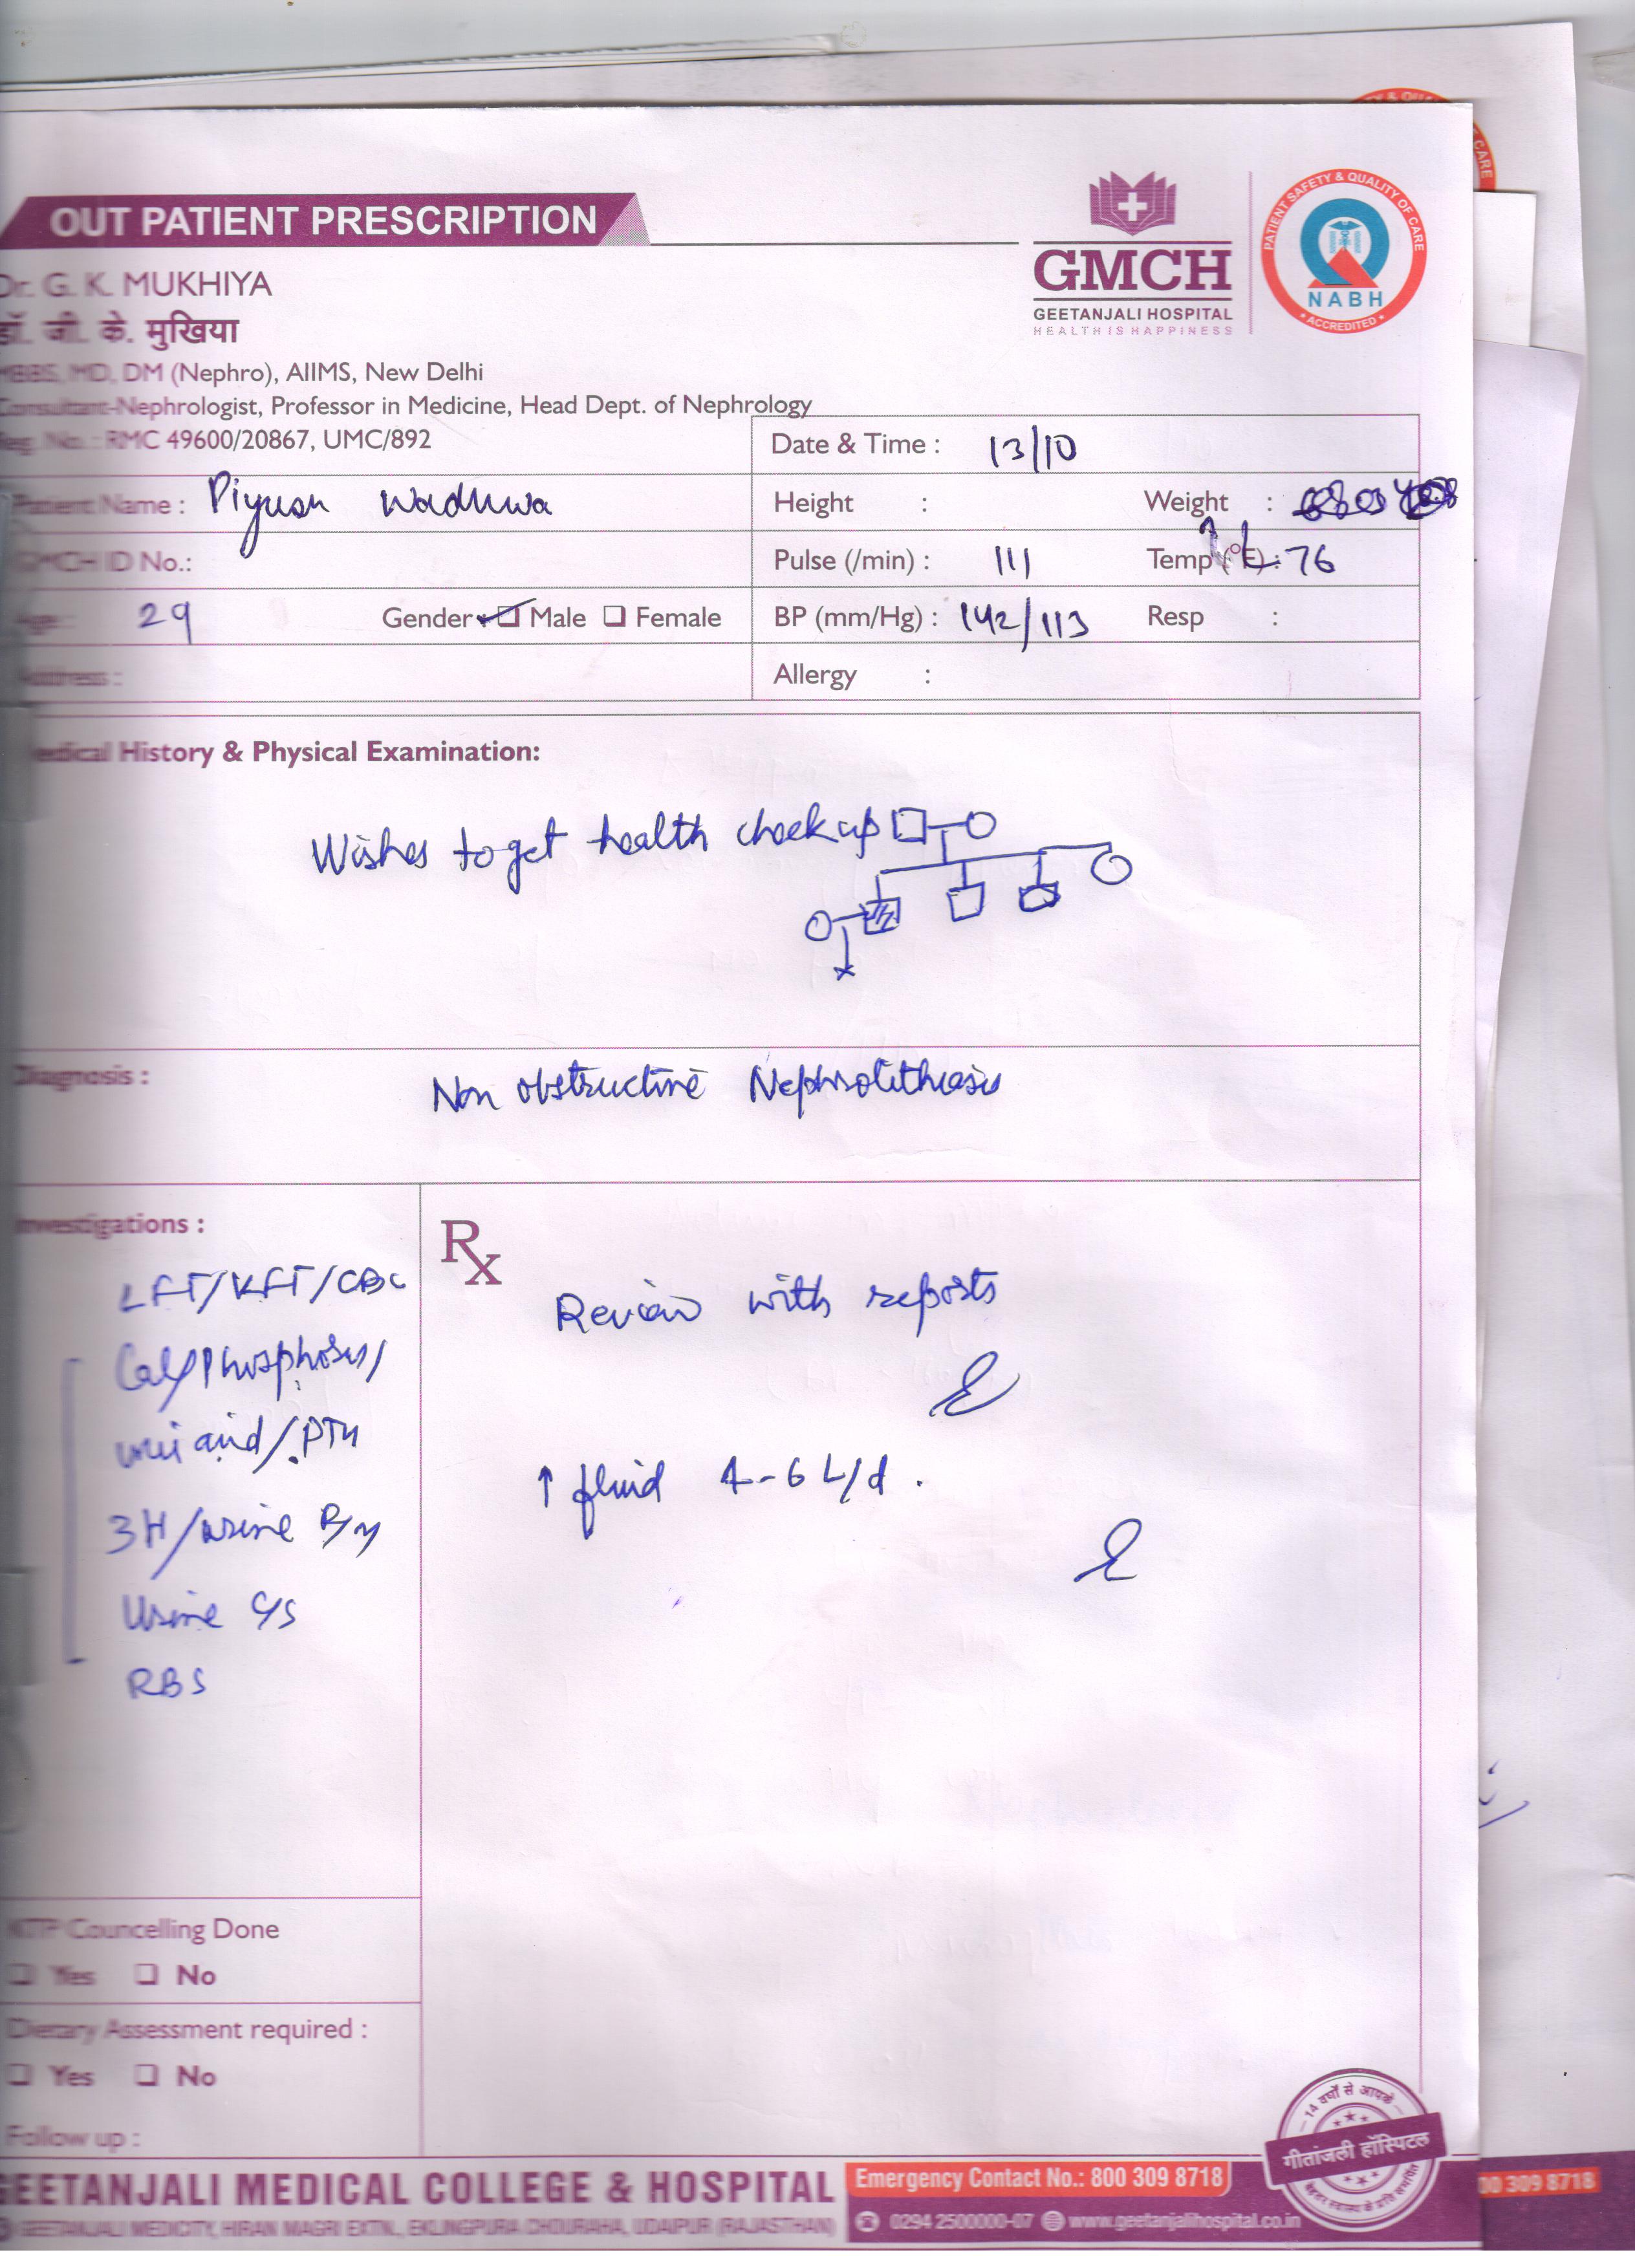 OUT PATIENT PRESCRIPTION
GMCH
GEETANJALI HOSPITAL
HEALTH IS HAPPINESS
PATIENT SAFETY & QUALITY OF CARE
NABH
ACCREDITED
Dr. G. K. MUKHIYA
डॉ. जी. के. मुखिया
MBBS, MD, DM (Nephro), AIIMS, New Delhi
Consultant-Nephrologist, Professor in Medicine, Head Dept. of Nephrology
Reg. No. : RMC 49600/20867, UMC/892
Date & Time : 13/10
Patient Name : Piyush Wadhwa
Height : Weight :
GMCH ID No.:
Pulse (/min) : 111 Temp (°F) : 76
Age : 29 Gender Male Female
BP (mm/Hg) : 142/113 Resp :
Address :
Allergy :
Medical History & Physical Examination:
Wishes to get health check up
Diagnosis : Non obstructive Nephrolithiasis
Investigations :
Rx
LFT/KFT/CBC
Cal/Phosphorus/
uric acid/PTH
3H/urine R/M
Urine C/S
RBS
Review with reports
↑ fluid 4-6 L/d.
KTP Councelling Done
Yes No
Dietary Assessment required :
Yes No
Follow up :
14 वर्षों से आपके
गीतांजली हॉस्पिटल
GEETANJALI MEDICAL COLLEGE & HOSPITAL
GEETANJALI MEDICITY, HIRAN MAGRI EXTN., EKLINGPURA CHOURAHA, UDAIPUR (RAJASTHAN)
Emergency Contact No.: 800 309 8718
0294 2500000-07 www.geetanjalihospital.co.in
00 309 8718